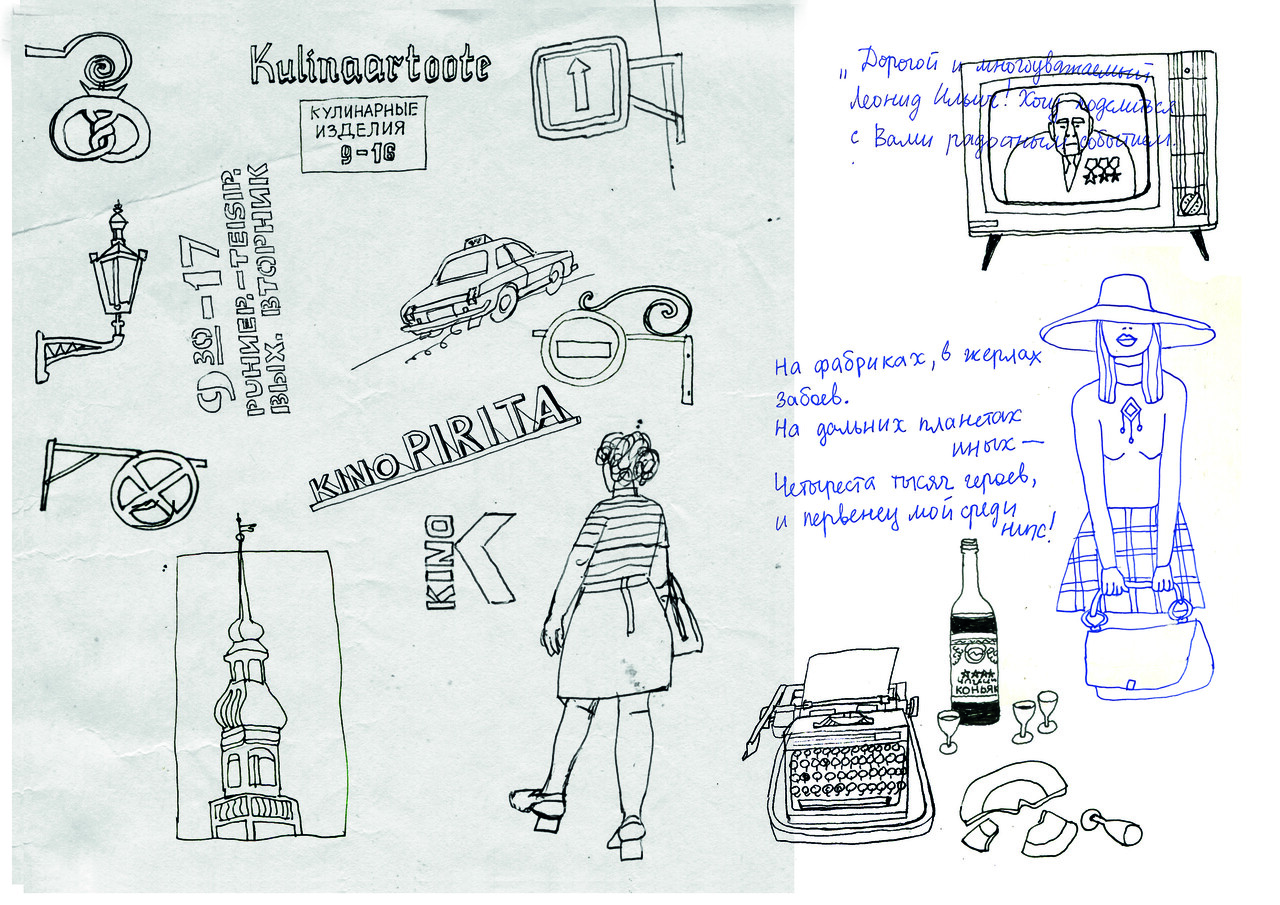 Kulinaartoote
КУЛИНАРНЫЕ
ИЗДЕЛИЯ
9-16
9 30 - 17
PUHHEP. - TEISIP.
ВЫХ. ВТОРНИК
KINO PIRITA
KINO
„Дорогой и многоуважаемый
Леонид Ильич! Хочу поделиться
с Вами радостным событием.
На фабриках, в жерлах
забоев.
На дальних планетах
иных —
Четыреста тысяч героев,
и первенец мой среди
них!
КОНЬЯК